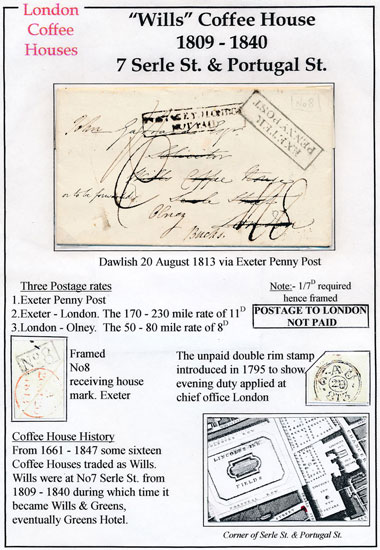 London
Coffee
Houses
“Wills” Coffee House
1809 - 1840
7 Serle St. & Portugal St.
No8
NOT PAID
EXETER
PENNY POST
John
or to be forwarded
Wills Coffee House
Serle Street
London
Olney
Bucks.
Dawlish 20 August 1813 via Exeter Penny Post
Three Postage rates
1.Exeter Penny Post
2.Exeter - London. The 170 - 230 mile rate of 11D
3.London - Olney. The 50 - 80 mile rate of 8D
Note:- 1/7D required
hence framed
POSTAGE TO LONDON
NOT PAID
No8
Framed
No8
receiving house
mark. Exeter
The unpaid double rim stamp
introduced in 1795 to show
evening duty applied at
chief office London
Coffee House History
From 1661 - 1847 some sixteen
Coffee Houses traded as Wills.
Wills were at No7 Serle St. from
1809 - 1840 during which time it
became Wills & Greens,
eventually Greens Hotel.
LINCOLN'S INN
FIELDS
Corner of Serle St. & Portugal St.